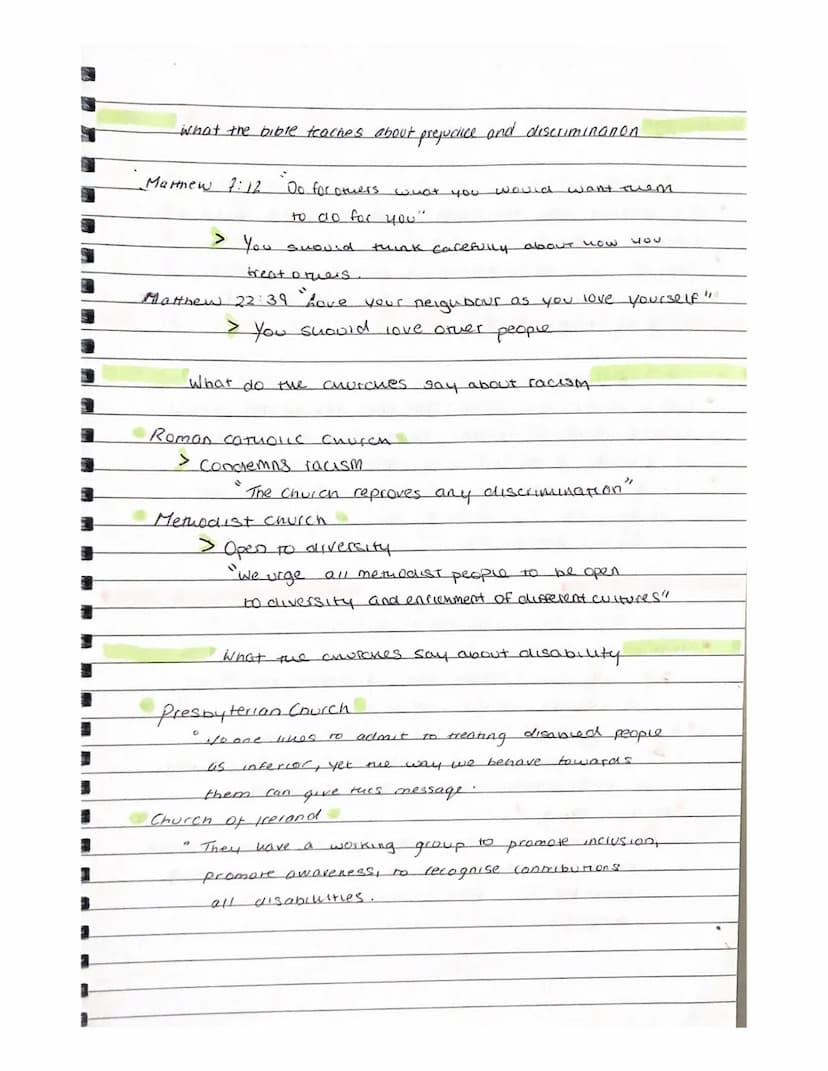 What the bible teaches about prejudice and discrimination
Matthew 7:12 "Do for others what you would want them
to do for you"
> You should think carefully about how you
treat others.
Matthew 22:39 "Love your neighbour as you love yourself"
> You should love other people
What do the churches say about racism
Roman catholic church
> Condemns racism
"The Church reproves any discrimination"
Methodist church
> Open to diversity
"We urge all methodist people to be open
to diversity and enrichment of different cultures"
What the churches say about disability
Presbyterian Church
"No one likes to admit to treating disabled people
as inferior, yet the way we behave towards
them can give this message.
Church of Ireland
" They have a working group to promote inclusion,
promote awareness, to recognise contributions
all disabilities.